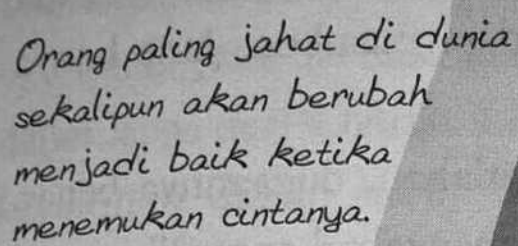 Orang paling jahat di dunia
sekalipun akan berubah
menjadi baik ketika
menemukan cintanya.